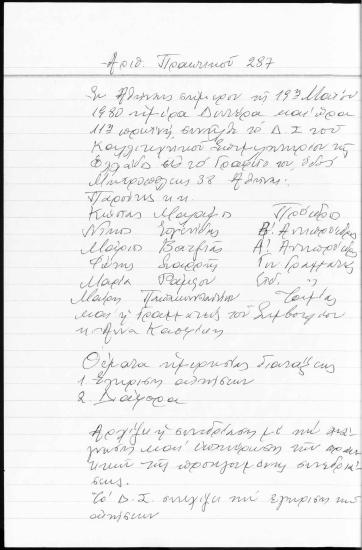 Αριθ. Πρακτικού 237
Εν Αθήναις σήμερον τη 19η Μαΐου
1980 ημέρα Δευτέρα και ώρα
11η πρωινή, συνήλθε το Δ.Σ του
Καλλιτεχνικού Επιμελητηρίου της
Ελλάδος εις το Γραφείο του, οδός
Μητροπόλεως 38 Αθήναι.
Παρόντες κ.κ.
Κώστας Πρόεδρο
Νίκος Β! Αντιπρόεδρος
Μάριος Βατζιάς Α! Αντιπρόεδρος
Φώτης Γεν. Γραμματεύς
Μαρία
Μαίρη Παπακωνσταντίνου Ταμίας
και η Γραμματεύς του Συμβουλίου
κ. Άννα
Θέματα ημερησίας διατάξεως
1. Έγκρισις αιτήσεων
2. Διάφορα
Αρχίζει η συνεδρίασις με την ανά-
γνωση και επικύρωση των πρακ-
τικών της προηγουμένης συνεδριά-
σεως.
Το Δ.Σ. συνεχίζει την έγκριση των
αιτήσεων